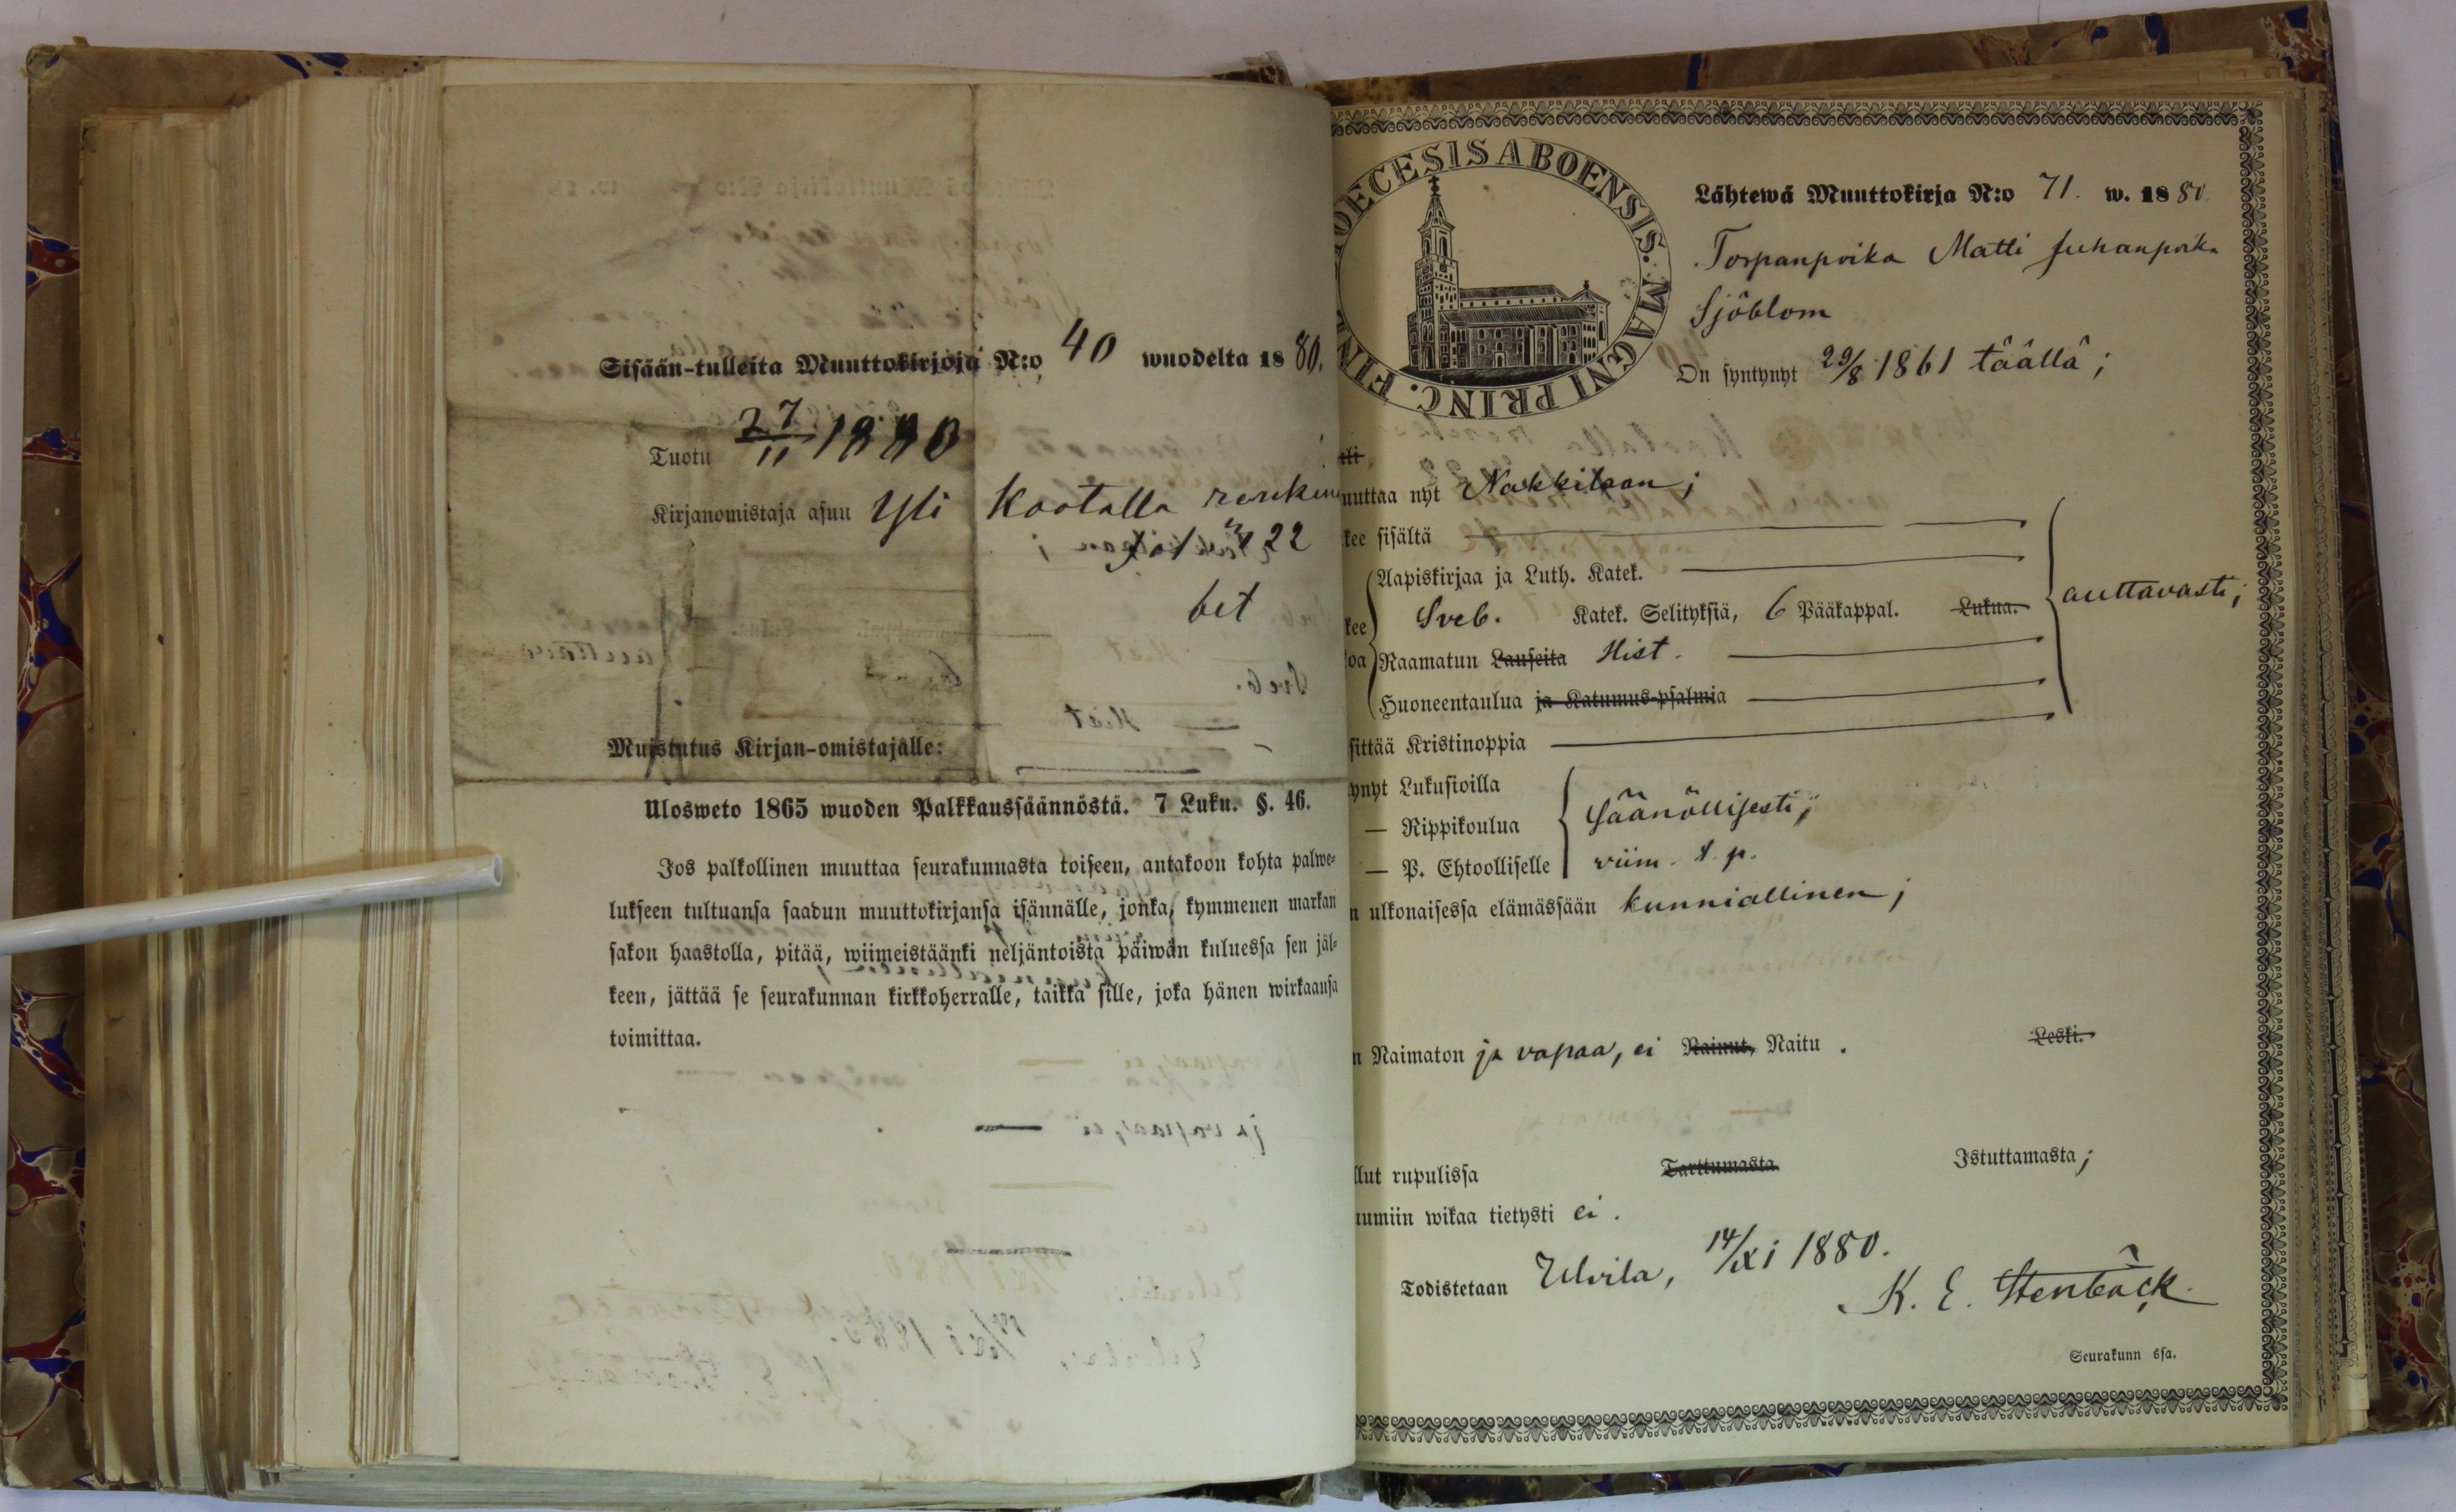 Sisään-tulleita Muuttokirjoja N:o 40 wuodelta 1880.
Tuotu 27/11 1880
Kirjanomistaja asuu Yli Kootalla renkinä
22
bet
Muistutus Kirjan-omistajalle:
Ulosweto 1865 wuoden Palkkaussäännöstä. 7 Luku. §. 46.
Jos palkollinen muuttaa seurakunnasta toiseen, antakoon kohta palwe-
lukseen tultuansa saadun muuttokirjansa isännälle, jonka, kymmenen markan
sakon haastolla, pitää, wiimeistäänki neljäntoista päiwän kuluessa sen jäl-
keen, jättää se seurakunnan kirkkoherralle, taikka sille, joka hänen wirkaansa
toimittaa.
OECESIS ABOENSIS. MAGNI PRINC. FIN
Lähtewä Muuttokirja N:o 71. w. 1880.
Torpanpoika Matti Juhanpoika
Sjöblom
On syntynyt 29/8 1861 täällä;
uuttaa nyt Nakkilaan;
kee sisältä
Aapiskirjaa ja Luth. Katek.
kee Sveb. Katek. Selityksiä, 6 Pääkappal. Lukua. auttavasti;
oa Raamatun Lauseita Hist.
Huoneentaulua ja Katumus-psalmia
sittää Kristinoppia
ynyt Lukusioilla
— Rippikoulua säänöllisesti;
— P. Ehtoolliselle viim. s. p.
n ulkonaisessa elämässään kunniallinen;
n Naimaton ja vapaa, ei Nainut, Naitu. Leski.
llut rupulissa Tarttumasta Istuttamasta;
umiin wikaa tietysti ei.
Todistetaan Ulvila, 14/XI 1880.
K. E. Stenbäck.
Seurakunn ssa.